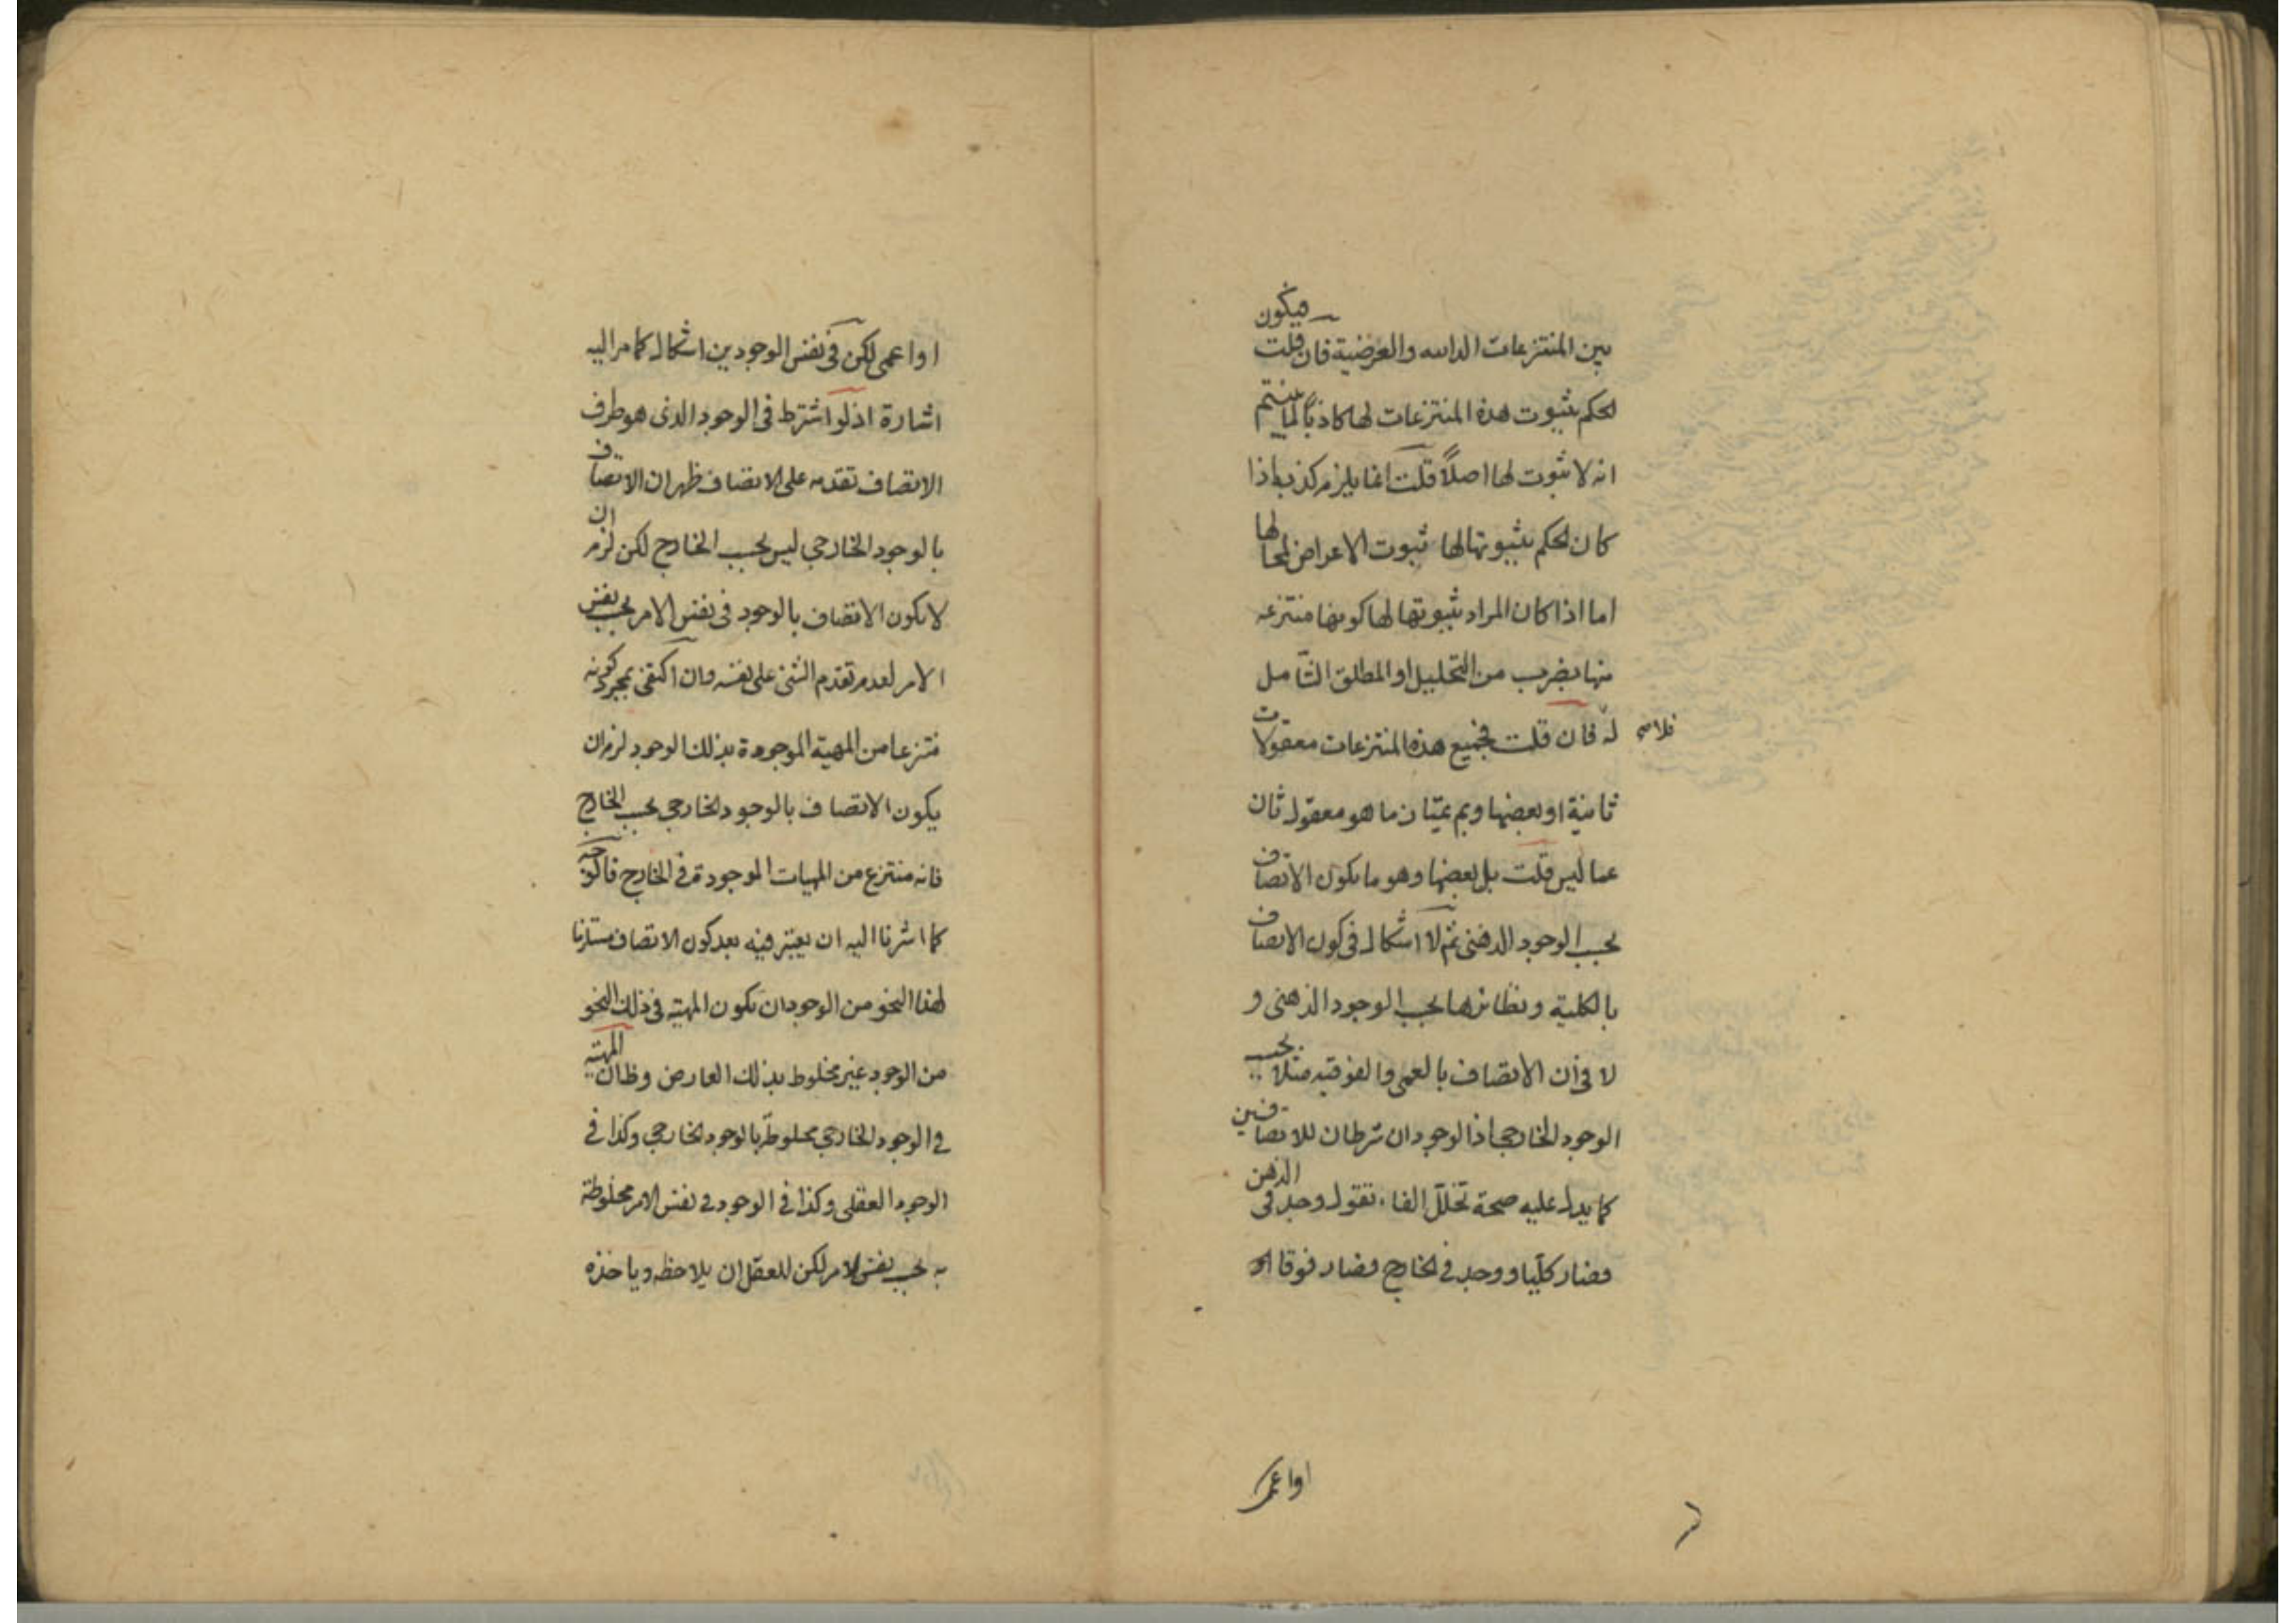 بين المنتزعات الذاتيه والعرضية فان قلت فيكون
لحكم بثبوت هذه المنتزعات لها كاذبًا لما بينتم
انه لا ثبوت لها اصلًا قلت انما يلزم كذبه اذا
كان لحكم بثبوتها لها ثبوت الاعراض لمحالها
اما اذا كان المراد بثبوتها لها كونها منتزعه
منها بضرب من التحليل او المطلق الشامل
له فان قلت فجميع هذه المنتزعات معقولات
ثانية او بعضها وبم يمتاز ما هو معقول ثان
عما ليس قلت بل بعضها وهو ما يكون الاتصاف
بحسب الوجود الذهنى ثم لا اشكال فى كون الاتصاف
بالكلية ونظائرها بحسب الوجود الذهنى و
لا فى ان الاتصاف بالعمى والفوقيه مثلا بحسب
الوجود الخارجى اذ الوجودان شرطان للاتصافين
كما يدل عليه صحة تخلل الفاء تقول وجد فى الذهن
فصار كليا ووجد فى الخارج فصار فوقا او
او اعمى
او اعمى لكن فى نفس الوجودين اشكال كما مر اليه
اشارة اذ لو اشترط فى الوجود الذى هو طرف
الاتصاف تقدمه على الاتصاف ظهر ان الاتصاف
بالوجود الخارجى ليس بحسب الخارج لكن لزم ان
لا يكون الاتصاف بالوجود فى نفس الامر بحسب نفس
الامر لعدم تقدم الشئ على نفسه وان اكتفى بمجرد كونه
منتزعا من المهية الموجودة بذلك الوجود لزم ان
يكون الاتصاف بالوجود الخارجى بحسب الخارج
فانه منتزع من المهيات الموجودة فى الخارج فالوجه
كما اشرنا اليه ان يعتبر فيه بعد كون الاتصاف مستلزما
لهذا النحو من الوجود ان تكون المهية فى ذلك النحو
من الوجود غير مخلوط بذلك العارض وظ ان المهية
فى الوجود الخارجى مخلوطة بالوجود الخارجى وكذا فى
الوجود العقلى وكذا فى الوجود فى نفس الامر مخلوطة
به بحسب نفس الامر لكن للعقل ان يلاحظه وياخذه